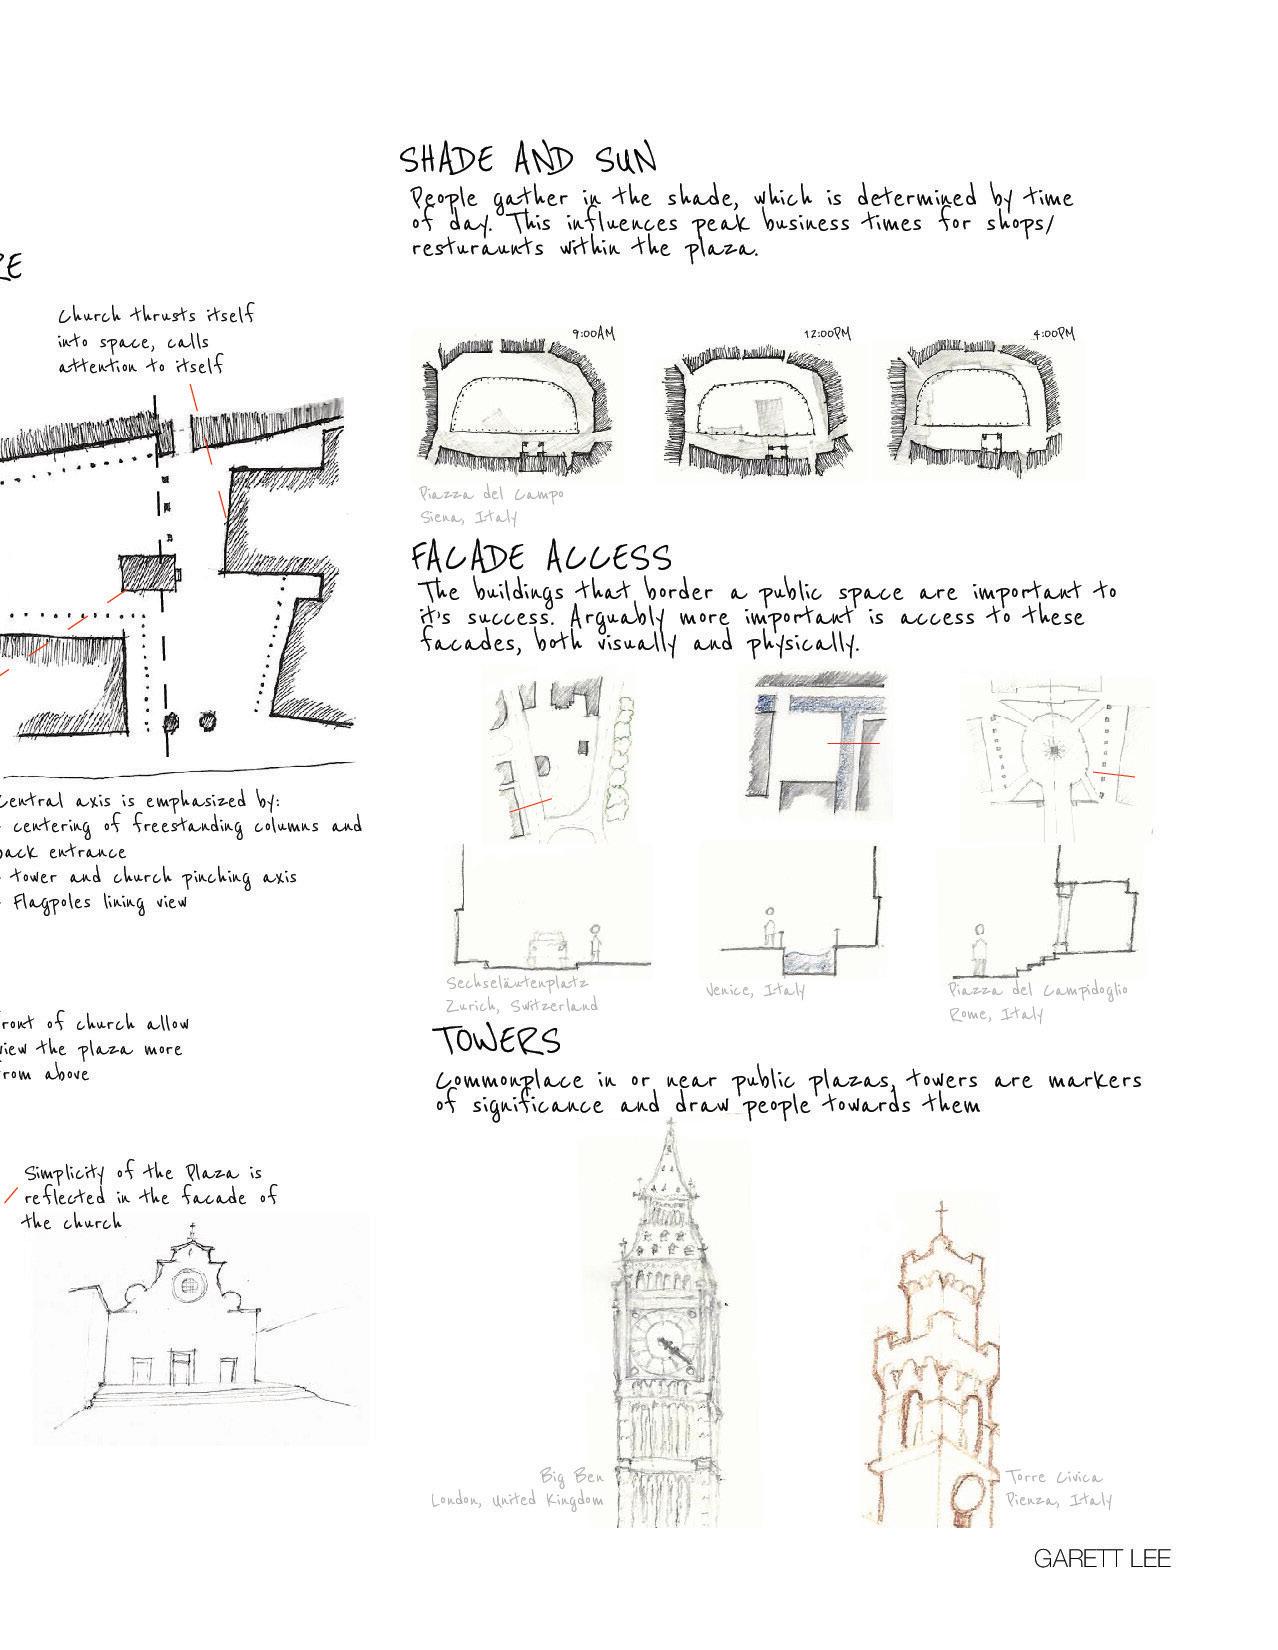 RE
Church thrusts itself
into space, calls
attention to itself
Central axis is emphasized by:
centering of freestanding columns and
back entrance
tower and church pinching axis
Flagpoles lining view
front of church allow
view the plaza more
from above
Simplicity of the Plaza is
reflected in the facade of
the church
SHADE AND SUN
People gather in the shade, which is determined by time
of day. This influences peak business times for shops/
resturaunts within the plaza.
9:00AM
12:00PM
4:00PM
Piazza del Campo
Siena, Italy
FACADE ACCESS
The buildings that border a public space are important to
it's success. Arguably more important is access to these
facades, both visually and physically.
Sechseläutenplatz
Zurich, Switzerland
Venice, Italy
Piazza del Campidoglio
Rome, Italy
TOWERS
Commonplace in or near public plazas, towers are markers
of significance and draw people towards them
Big Ben
London, United Kingdom
Torre Civica
Pienza, Italy
GARETT LEE